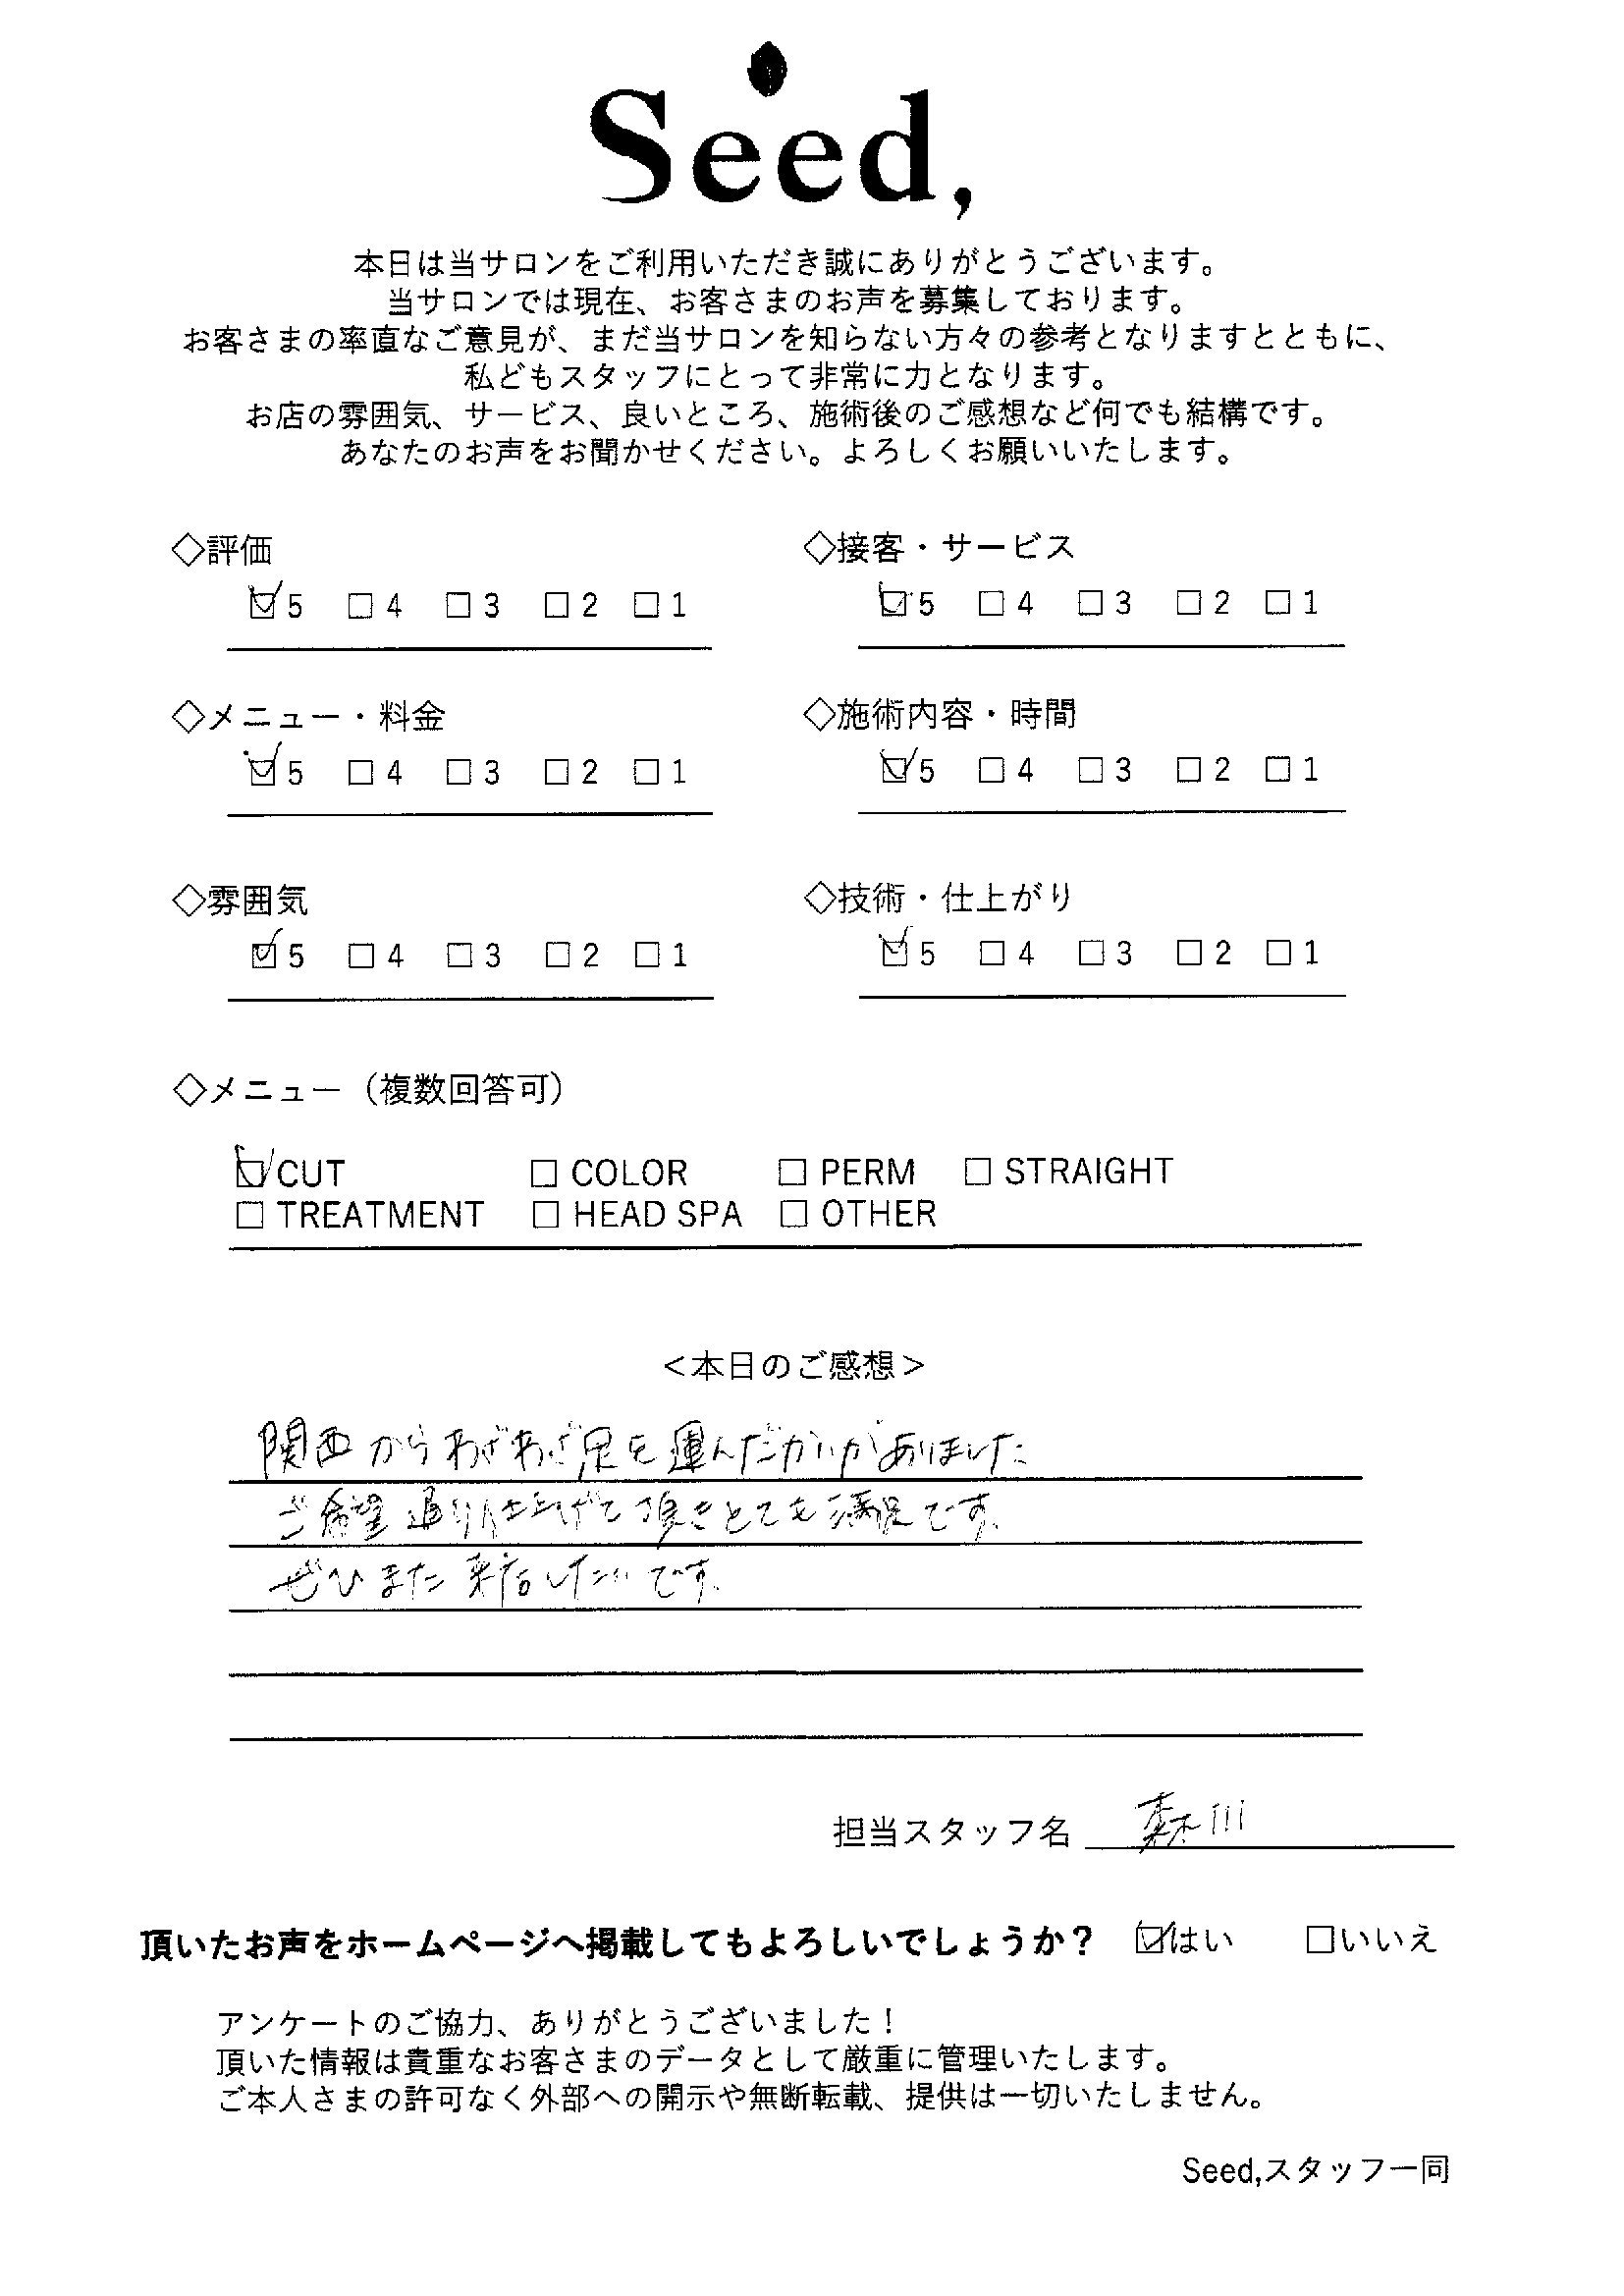 Seed,
本日は当サロンをご利用いただき誠にありがとうございます。
当サロンでは現在、お客さまのお声を募集しております。
お客さまの率直なご意見が、まだ当サロンを知らない方々の参考となりますとともに、
私どもスタッフにとって非常に力となります。
お店の雰囲気、サービス、良いところ、施術後のご感想など何でも結構です。
あなたのお声をお聞かせください。よろしくお願いいたします。
◇評価
☑5 □4 □3 □2 □1
◇接客・サービス
☑5 □4 □3 □2 □1
◇メニュー・料金
☑5 □4 □3 □2 □1
◇施術内容・時間
☑5 □4 □3 □2 □1
◇雰囲気
☑5 □4 □3 □2 □1
◇技術・仕上がり
☑5 □4 □3 □2 □1
◇メニュー（複数回答可）
☑CUT □ COLOR □ PERM □ STRAIGHT
□ TREATMENT □ HEAD SPA □ OTHER
＜本日のご感想＞
関西からわざわざ足を運んだかいがありました
ご希望通り仕上げて頂きとても満足です。
ぜひまた来店したいです。
担当スタッフ名 森川
頂いたお声をホームページへ掲載してもよろしいでしょうか？ ☑はい □いいえ
アンケートのご協力、ありがとうございました！
頂いた情報は貴重なお客さまのデータとして厳重に管理いたします。
ご本人さまの許可なく外部への開示や無断転載、提供は一切いたしません。
Seed,スタッフ一同